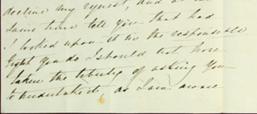 decline my request, and at the
same time tell you that had
I looked upon it in the responsible
light you do I should not have
taken the liberty of asking you
to undertake it, as I am aware